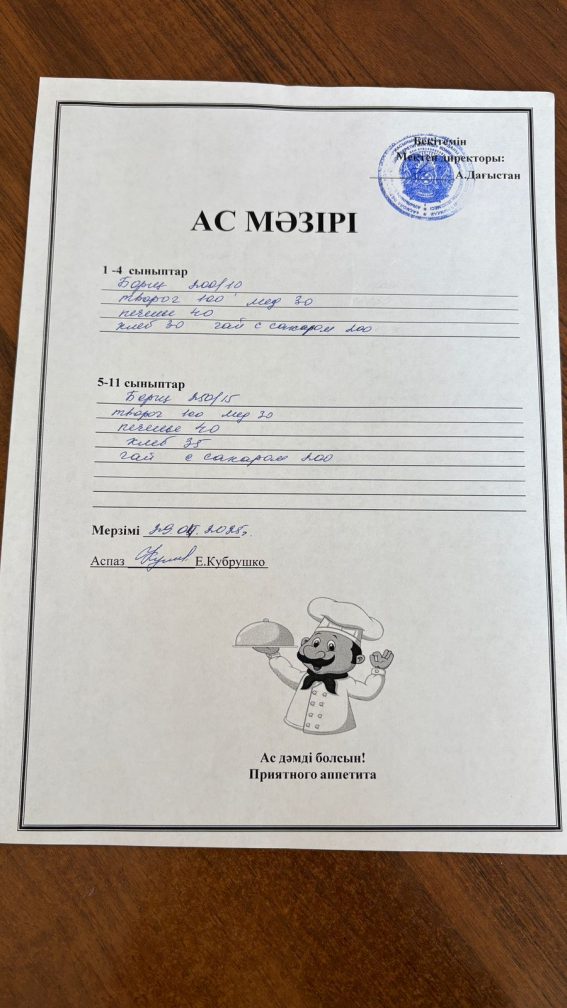 Бекітемін
Мектеп директоры:
А.Дағыстан
АС МӘЗІРІ
1 -4 сыныптар
Борщ 200/10
творог 100 мед 30
печенье 40
хлеб 30 чай с сахаром 200
5-11 сыныптар
Борщ 250/15
творог 100 мед 30
печенье 40
хлеб 35
чай с сахаром 200
Мерзімі 29.04.2025г.
Аспаз Е.Кубрушко
Ас дәмді болсын!
Приятного аппетита